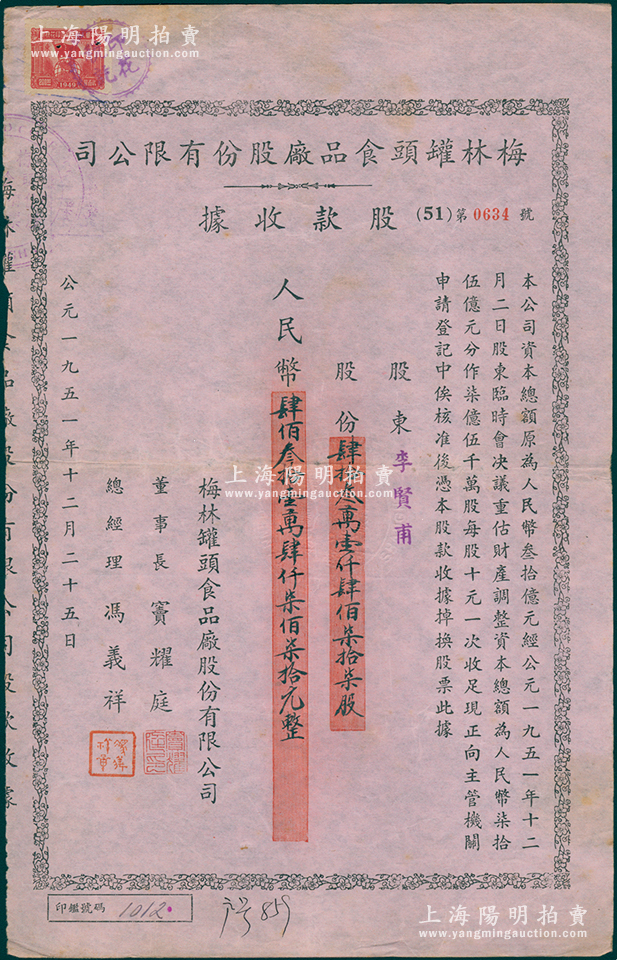 上海陽明拍賣
www.yangmingauction.com
1949
梅林罐頭食品廠股份有限公司
股款收據
(51)第0634號
本公司資本總額原為人民幣叁拾億元經公元一九五一年十二
月二日股東臨時會決議重估財產調整資本總額為人民幣柒拾
伍億元分作柒億伍千萬股每股十元一次收足現正向主管機關
申請登記中俟核准後憑本股款收據掉換股票此據
股東李賢甫
股份肆拾叁萬壹仟肆佰柒拾柒股
人民幣肆佰叁拾壹萬肆仟柒佰柒拾元整
梅林罐頭食品廠股份有限公司
董事長竇耀庭
總經理馮義祥
公元一九五一年十二月二十五日
梅林罐頭食品廠股份有限公司股款收據
上海陽明拍賣
www.yangmingauction.com
印鑑號碼 1012
859
上海陽明拍賣
www.yangmingauction.com